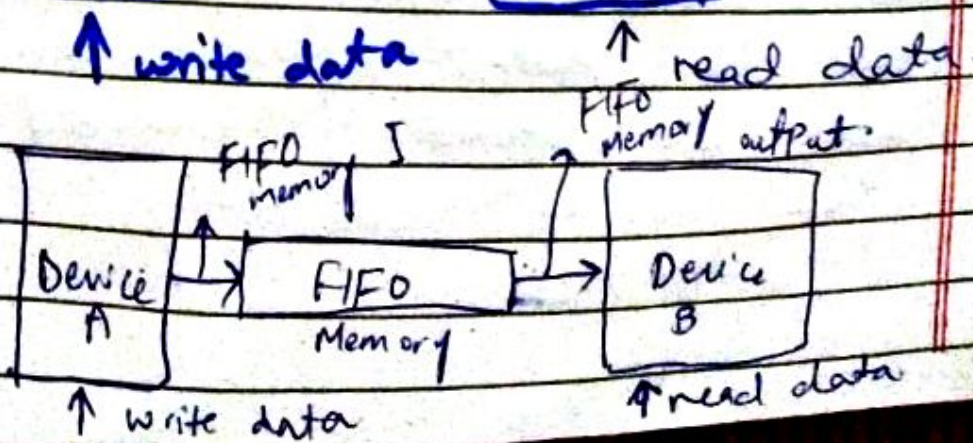 write data
read data
FIFO
memory output
FIFO
memory
Device
A
FIFO
Memory
Device
B
write data
read data